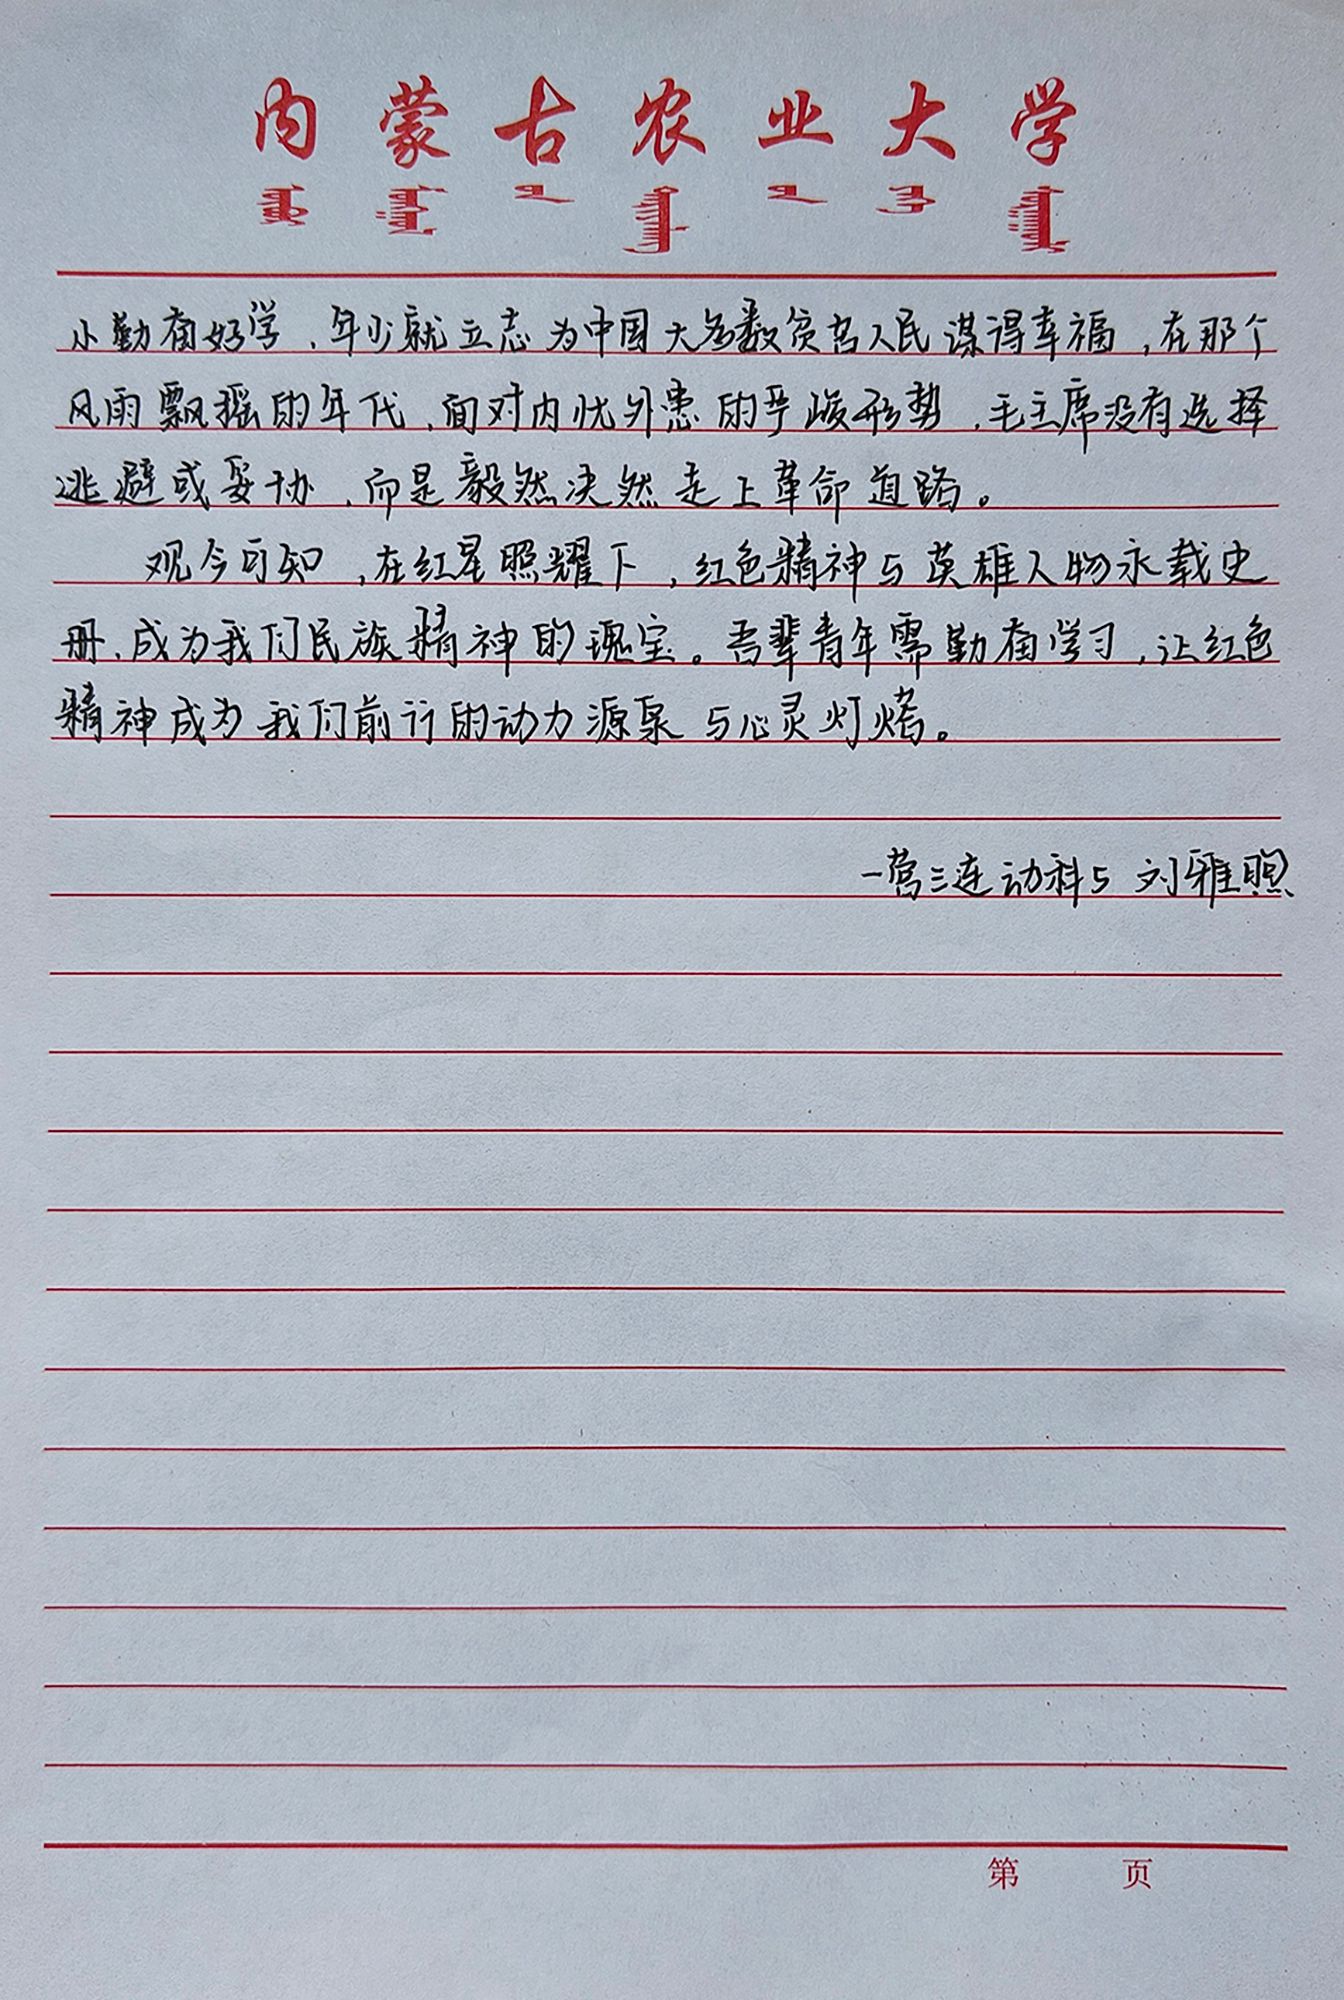 内蒙古农业大学
小勤奋好学,年少就立志为中国大多数贫苦人民谋得幸福,在那个
风雨飘摇的年代,面对内忧外患的严峻形势,毛主席没有选择
逃避或妥协,而是毅然决然走上革命道路。
观今可知,在红星照耀下,红色精神与英雄人物永载史
册,成为我们民族精神的瑰宝。吾辈青年需勤奋学习,让红色
精神成为我们前行的动力源泉与心灵灯塔。
一营三连动科5 刘雅煦
第 页